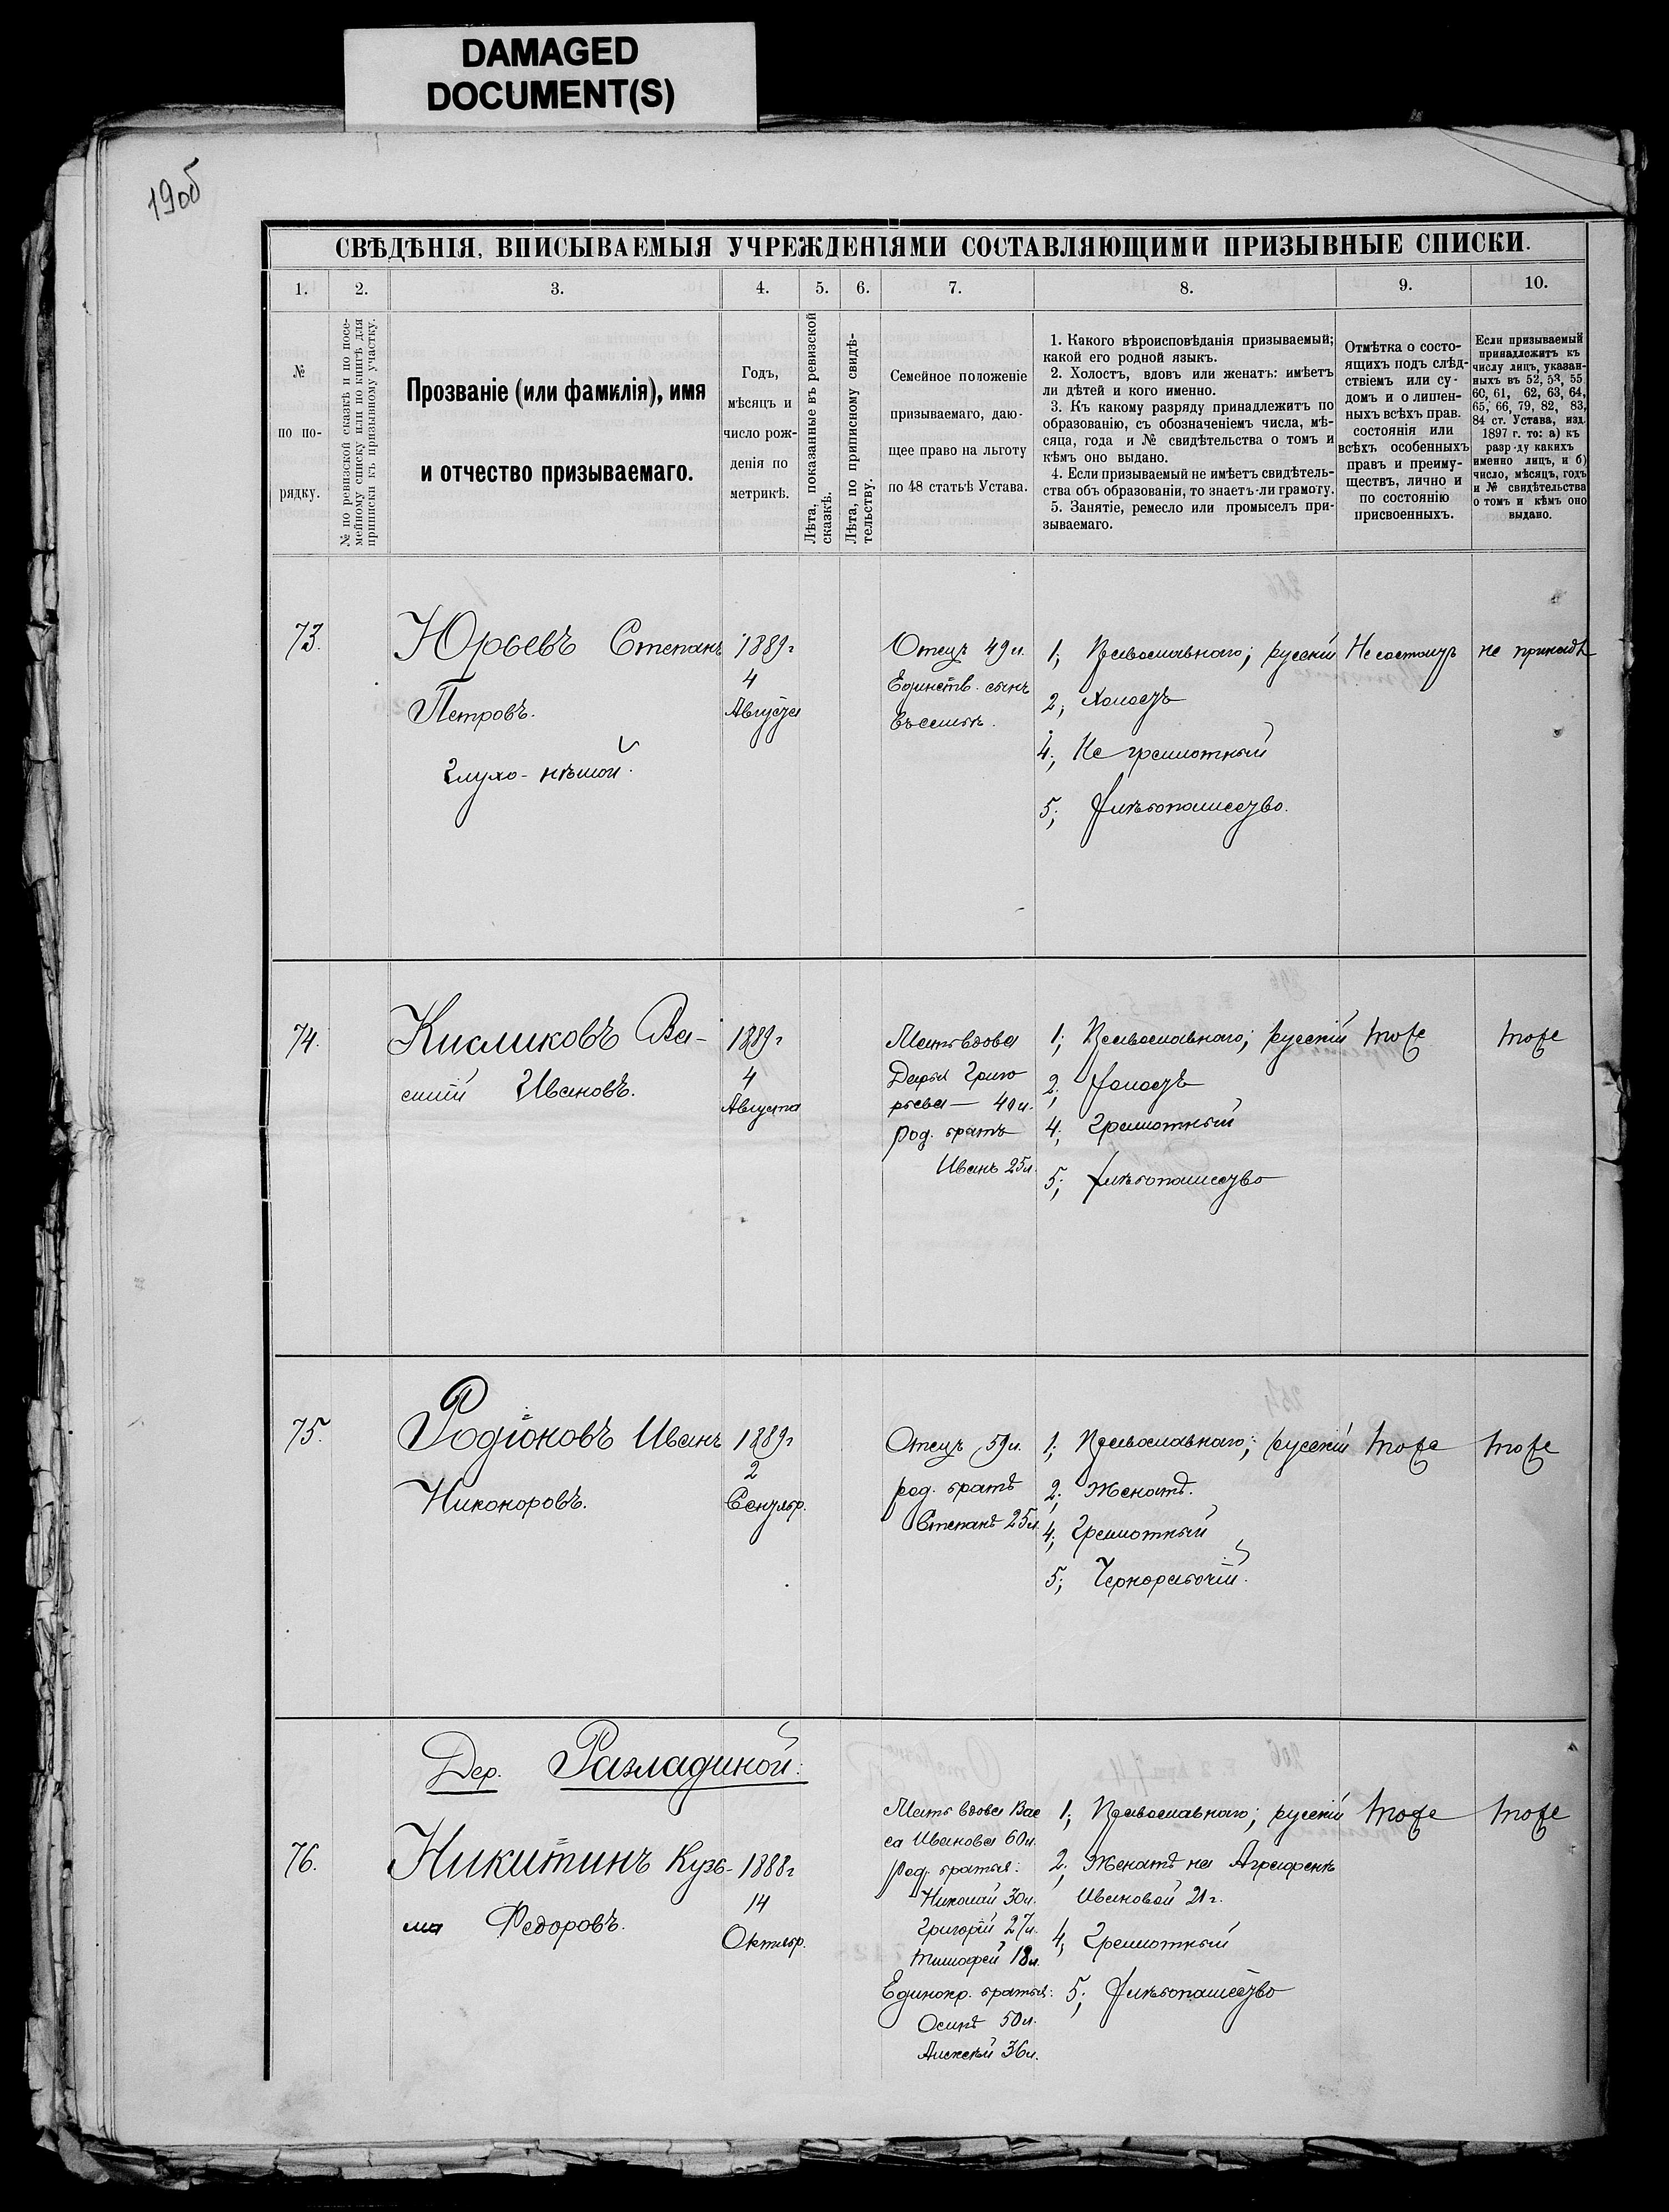 DAMAGED
DOCUMENT(S)
190об
СВѢДѢНІЯ, ВПИСЫВАЕМЫЯ УЧРЕЖДЕНІЯМИ СОСТАВЛЯЮЩИМИ ПРИЗЫВНЫЕ СПИСКИ.
1. 2. 3. 4. 5. 6. 7. 8. 9. 10.
№
по по-
рядку.
№ по ревизской сказкѣ и по посе-
мейному списку или по книгѣ для
приписки къ призывному участку.
Прозваніе (или фамилія), имя
и отчество призываемаго.
Годъ,
мѣсяцъ и
число рож-
денія по
метрикѣ.
Лѣта, показанные въ ревизской
сказкѣ.
Лѣта, по приписному свидѣ-
тельству.
Семейное положеніе
призываемаго, даю-
щее право на льготу
по 48 статьѣ Устава.
1. Какого вѣроисповѣданія призываемый;
какой его родной языкъ.
2. Холостъ, вдовъ или женатъ: имѣетъ
ли дѣтей и кого именно.
3. Къ какому разряду принадлежитъ по
образованію, съ обозначеніемъ числа, мѣ-
сяца, года и № свидѣтельства о томъ и
кѣмъ оно выдано.
4. Если призываемый не имѣетъ свидѣтель-
ства объ образованіи, то знаетъ-ли грамоту.
5. Занятіе, ремесло или промыселъ при-
зываемаго.
Отмѣтка о состо-
ящихъ подъ слѣд-
ствіемъ или су-
домъ и о лишен-
ныхъ всѣхъ прав.
состоянія или
всѣхъ особенныхъ
правъ и преиму-
ществъ, лично и
по состоянію
присвоенныхъ.
Если призываемый
принадлежитъ къ
числу лицъ, указан-
ныхъ въ 52, 53, 55
60, 61, 62, 63, 64,
65, 66, 79, 82, 83,
84 ст. Устава, изд.
1897 г. то: а) къ
разр-ду какихъ
именно лицъ, и б)
число, мѣсяцъ, годъ
и № свидѣтельства
о томъ и кѣмъ оно
выдано.
73.
Юрьевъ Степанъ
Петровъ.
Глухо-нѣмой.
1889г
4
Августа
Отецъ 49л.
Единств. сынъ
въ семьѣ.
1; Православнаго; русскій
2; Холостъ
4; Не грамотный
5; Хлѣбопашество.
Не состоитъ
не принадл
74.
Кисликовъ Ва-
силій Ивановъ.
1889г
4
Августа
Мать вдова
Дарья Григо
рьева — 49л.
род. братъ
Иванъ 25л.
1; Православнаго; русскій
2; Холостъ
4; Грамотный
5; Хлѣбопашество
тоже
тоже
75.
Родіоновъ Иванъ
Никоноровъ.
1889г
2
Сентябр.
Отецъ 59л.
род. братъ
Степанъ 25л.
1; Православнаго; русскій
2; Женатъ.
4; Грамотный
5; Чернорабочій.
тоже
тоже
Дер. Разладиной:
76.
Никитинъ Кузь-
ма Федоровъ.
1888г
14
Октябр.
Мать вдова Вас
са Иванова 60л.
род. братья:
Николай 30л.
Григорій 27л.
Тимофей 18л.
Единокр. братья:
Осипъ 50л.
Алексѣй 36л.
1; Православнаго; русскій
2; Женатъ на Аграфенѣ
Ивановой 21г.
4; Грамотный
5; Хлѣбопашество
тоже
тоже